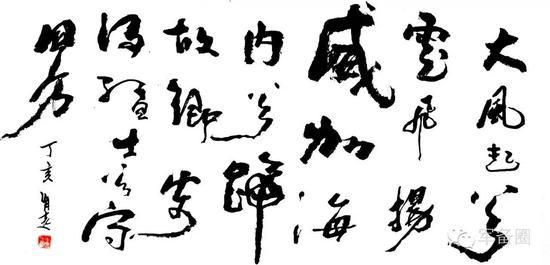 大風起兮
雲飛揚
威加海
內兮歸
故鄉安
得猛士兮守
四方
丁亥
军备圈